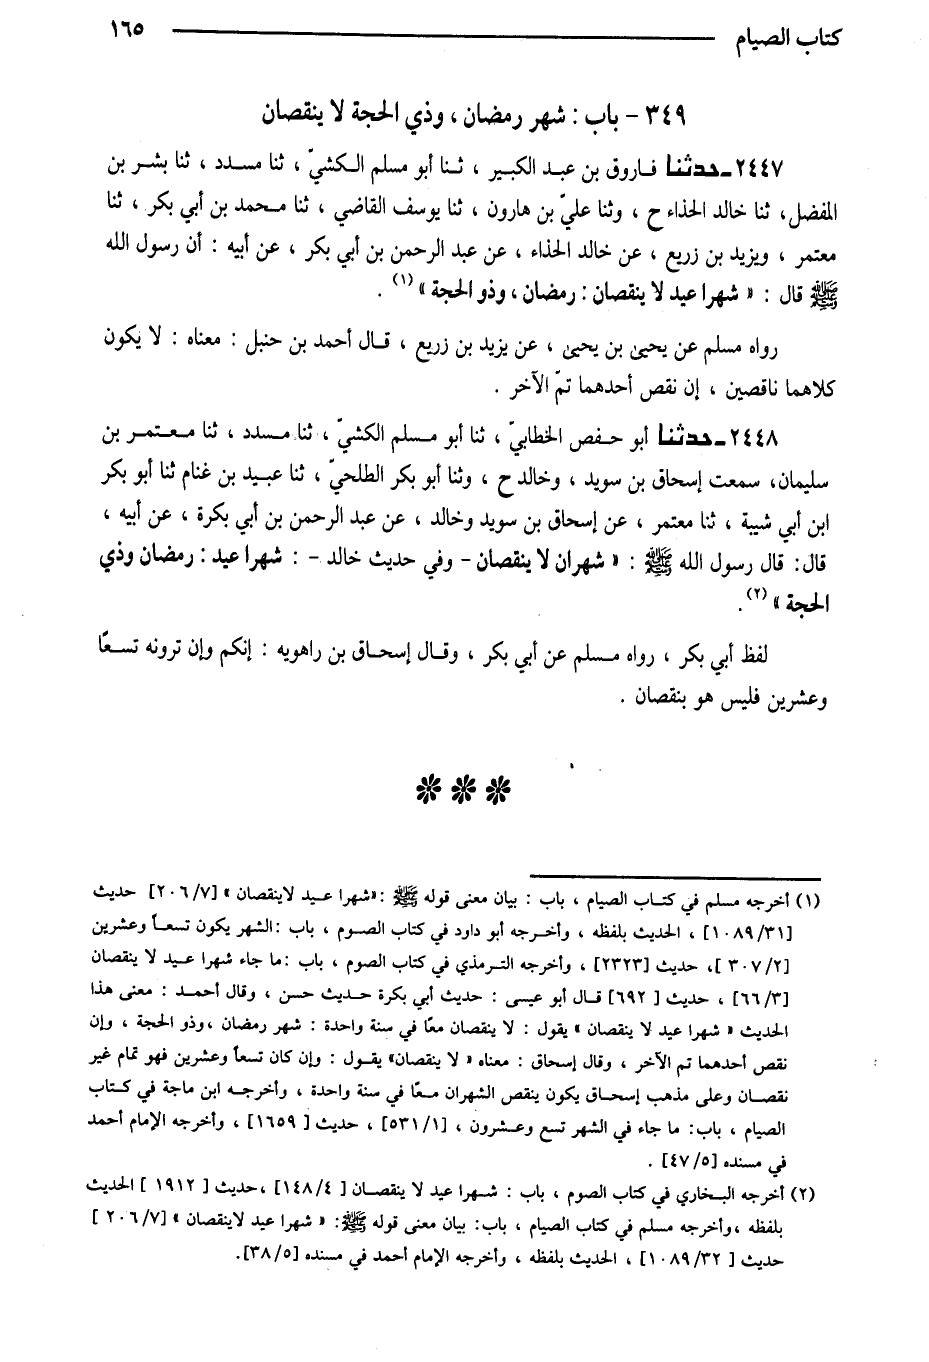 كتاب الصيام ١٦٥
٣٤٩ - باب : شهر رمضان ، وذي الحجة لا ينقصان
٢٤٤٧ـ حدثنا فاروق بن عبد الكبير ، ثنا أبو مسلم الكشيّ ، ثنا مسدد ، ثنا بشر بن
المفضل، ثنا خالد الحذاء ح ، وثنا عليّ بن هارون ، ثنا يوسف القاضي ، ثنا محمد بن أبي بكر ، ثنا
معتمر ، ويزيد بن زريع ، عن خالد الحذاء ، عن عبد الرحمن بن أبي بكر ، عن أبيه : أن رسول الله
ﷺ قال : « شهرا عيد لا ينقصان : رمضان ، وذو الحجة » (١) .
رواه مسلم عن يحيىٰ بن يحيىٰ ، عن يزيد بن زريع ، قال أحمد بن حنبل : معناه : لا يكون
كلاهما ناقصين ، إن نقص أحدهما تمّ الآخر .
٢٤٤٨ـ حدثنا أبو حفص الخطابيّ ، ثنا أبو مسلم الكشيّ ، ثنا مسدد ، ثنا معتمر بن
سليمان، سمعت إسحاق بن سويد ، وخالد ح ، وثنا أبو بكر الطلحيّ ، ثنا عبيد بن غنام ثنا أبو بكر
ابن أبي شيبة ، ثنا معتمر ، عن إسحاق بن سويد وخالد ، عن عبد الرحمن بن أبي بكرة ، عن أبيه ،
قال: قال رسول الله ﷺ : « شهران لا ينقصان - وفي حديث خالد - : شهرا عيد : رمضان وذي
الحجة » (٢).
لفظ أبي بكر ، رواه مسلم عن أبي بكر ، وقال إسحاق بن راهويه : إنكم وإن ترونه تسعًا
وعشرين فليس هو بنقصان .
(١) أخرجه مسلم في كتاب الصيام ، باب : بيان معنى قوله ﷺ :«شهرا عيد لاينقصان » [٢٠٦/٧] حديث
[١٠٨٩/٣١] ، الحديث بلفظه ، وأخرجه أبو داود في كتاب الصوم ، باب :الشهر يكون تسعاً وعشرين
[٣٠٧/٢ ]، حديث [٢٣٢٣] ، وأخرجه الترمذي في كتاب الصوم ، باب :ما جاء شهرا عيد لا ينقصان
[٦٦/٣] ، حديث [ ٦٩٢] قال أبو عيسى : حديث أبي بكرة حديث حسن ، وقال أحمد : معنى هذا
الحديث « شهرا عيد لا ينقصان » يقول : لا ينقصان معًا في سنة واحدة : شهر رمضان ،وذو الحجة ، وإن
نقص أحدهما تم الآخر ، وقال إسحاق : معناه « لا ينقصان» يقول : وإن كان تسعاً وعشرين فهو تمام غير
نقصان وعلى مذهب إسحاق يكون ينقص الشهران معًا في سنة واحدة ، وأخرجه ابن ماجة في كتاب
الصيام ، باب: ما جاء في الشهر تسع وعشرون ، [٥٣١/١] ، حديث [ ١٦٥٩] ، وأخرجه الإمام أحمد
في مسنده [٤٧/٥] .
(٢) أخرجه البخاري في كتاب الصوم ، باب : شهرا عيد لا ينقصان [ ١٤٨/٤] ،حديث [ ١٩١٢ ] الحديث
بلفظه ،وأخرجه مسلم في كتاب الصيام ، باب: بيان معنى قوله ﷺ: « شهرا عيد لاينقصان » [٢٠٦/٧ ]
حديث [ ١٠٨٩/٣٢] ، الحديث بلفظه ، وأخرجه الإمام أحمد في مسنده [٣٨/٥].